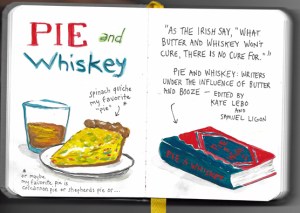 PIE and
Whiskey
spinach quiche
my favorite
"pie"
* or maybe
my favorite pie is
colcannon pie or shepherds pie or...
"AS THE IRISH SAY, "WHAT
BUTTER AND WHISKEY WON'T
CURE, THERE IS NO CURE FOR.""
PIE AND WHISKEY: WRITERS
UNDER THE INFLUENCE OF BUTTER
AND BOOZE – EDITED BY
KATE LEBO
AND
SAMUEL LIGON